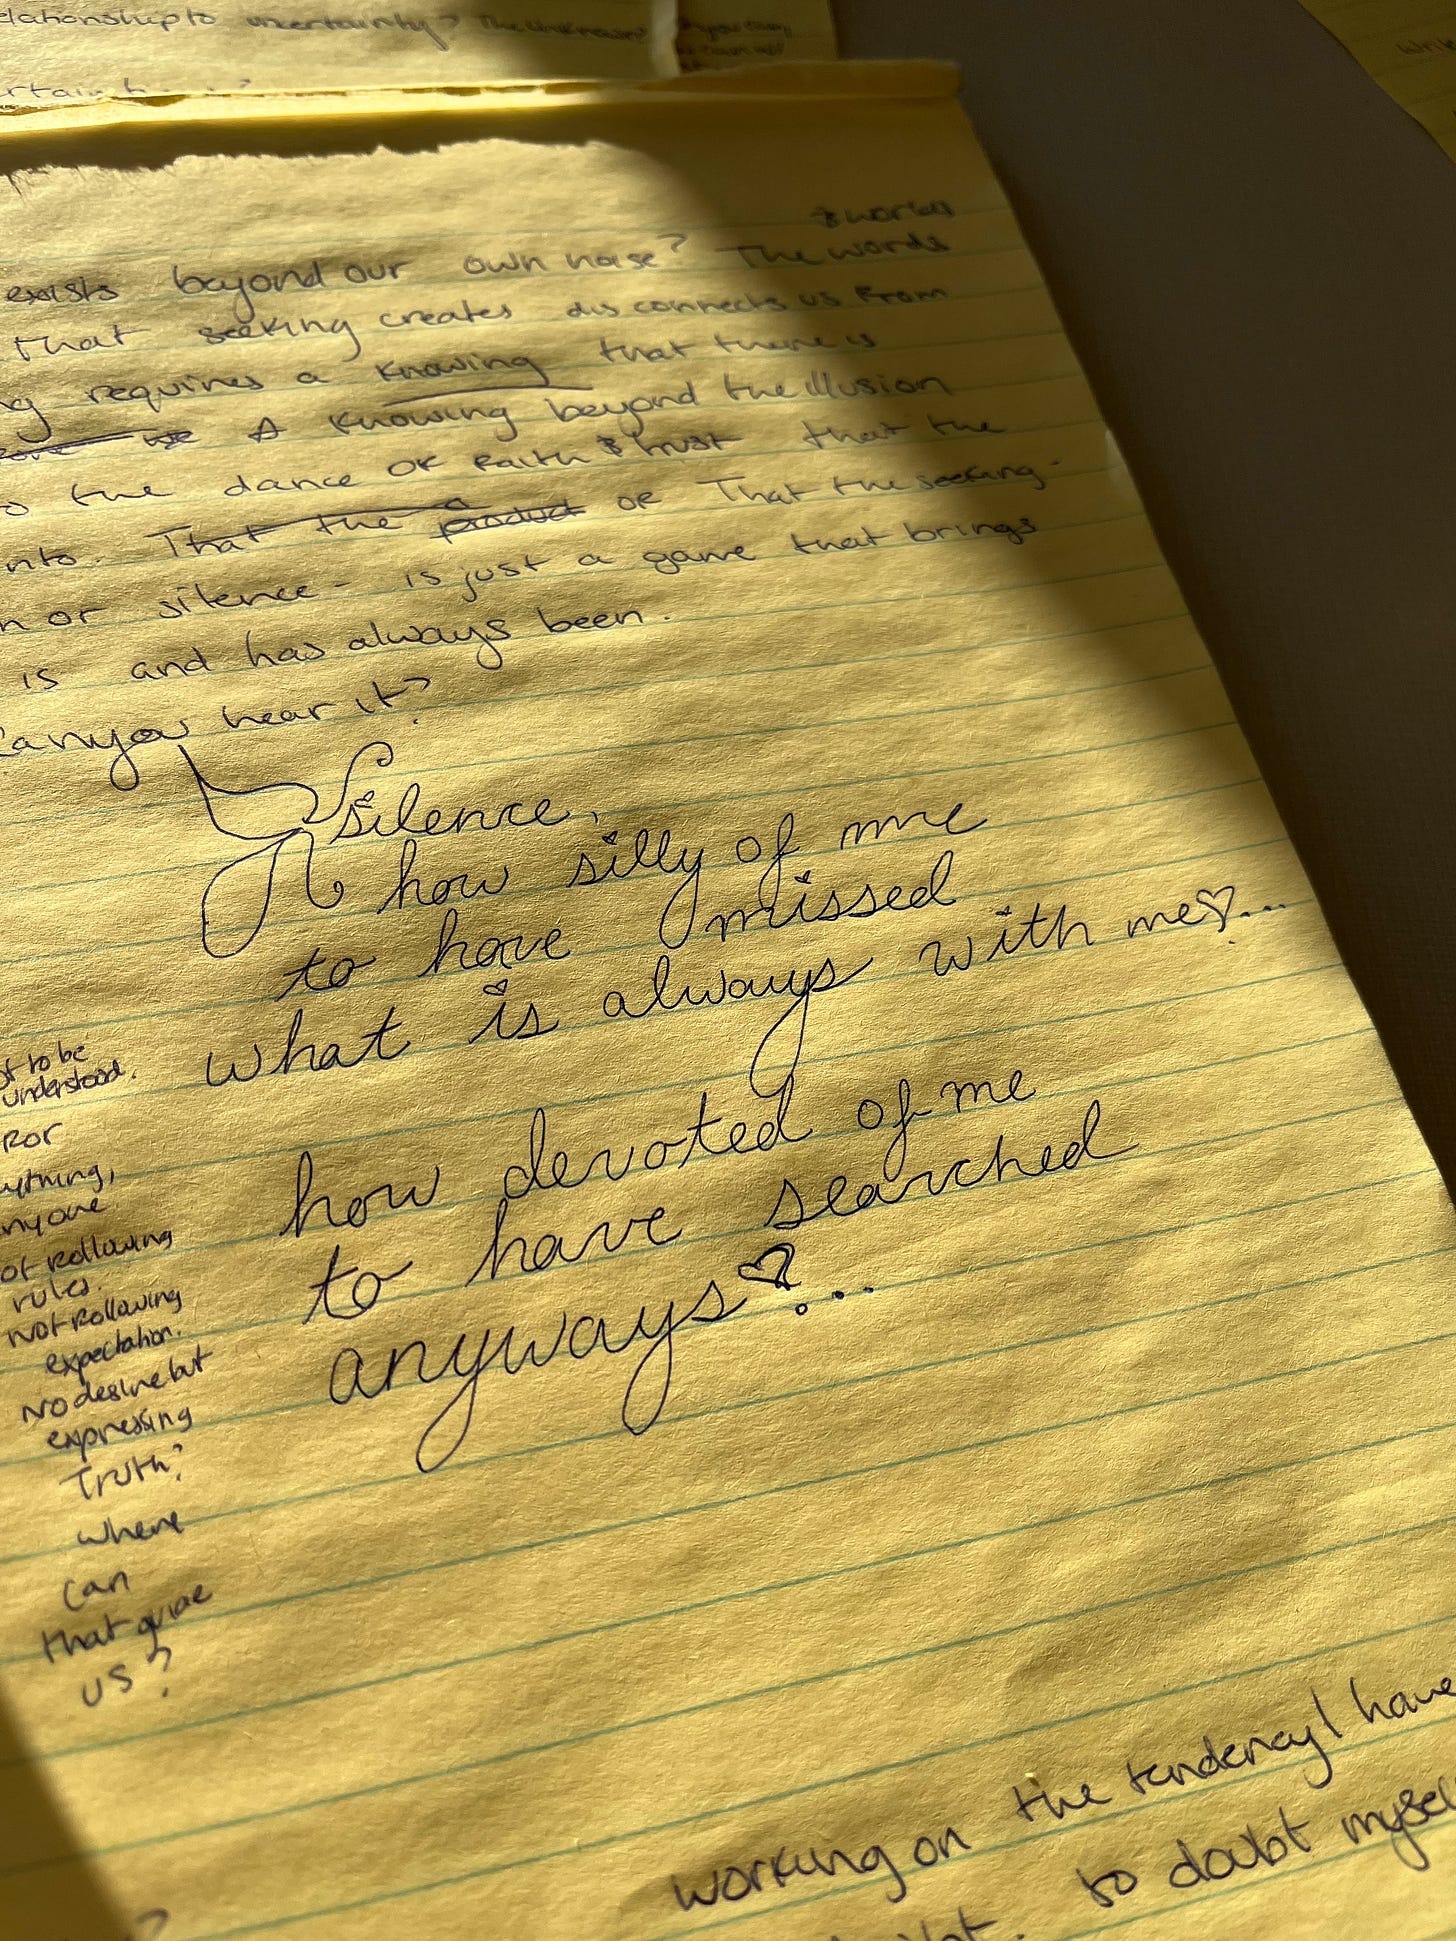 relationship to uncertainty? The unknown?
& works
exists beyond our own noise? The words
that seeking creates disconnects us from
requires a knowing that there is
we A knowing beyond the illusion
the dance of faith & trust that the
That the product of That the seeking-
or silence - is just a game that brings
is and has always been.
Can you hear it?
silence,
how silly of me
to have missed
what is always with me♡...
how devoted of me
to have searched
anyways♡?...
to be
understood.
For
anyone.
not following
rules.
Not following
expectation.
No desire but
expressing
Truth?
where
can
that guide
us?
working on the tendency I have
to doubt